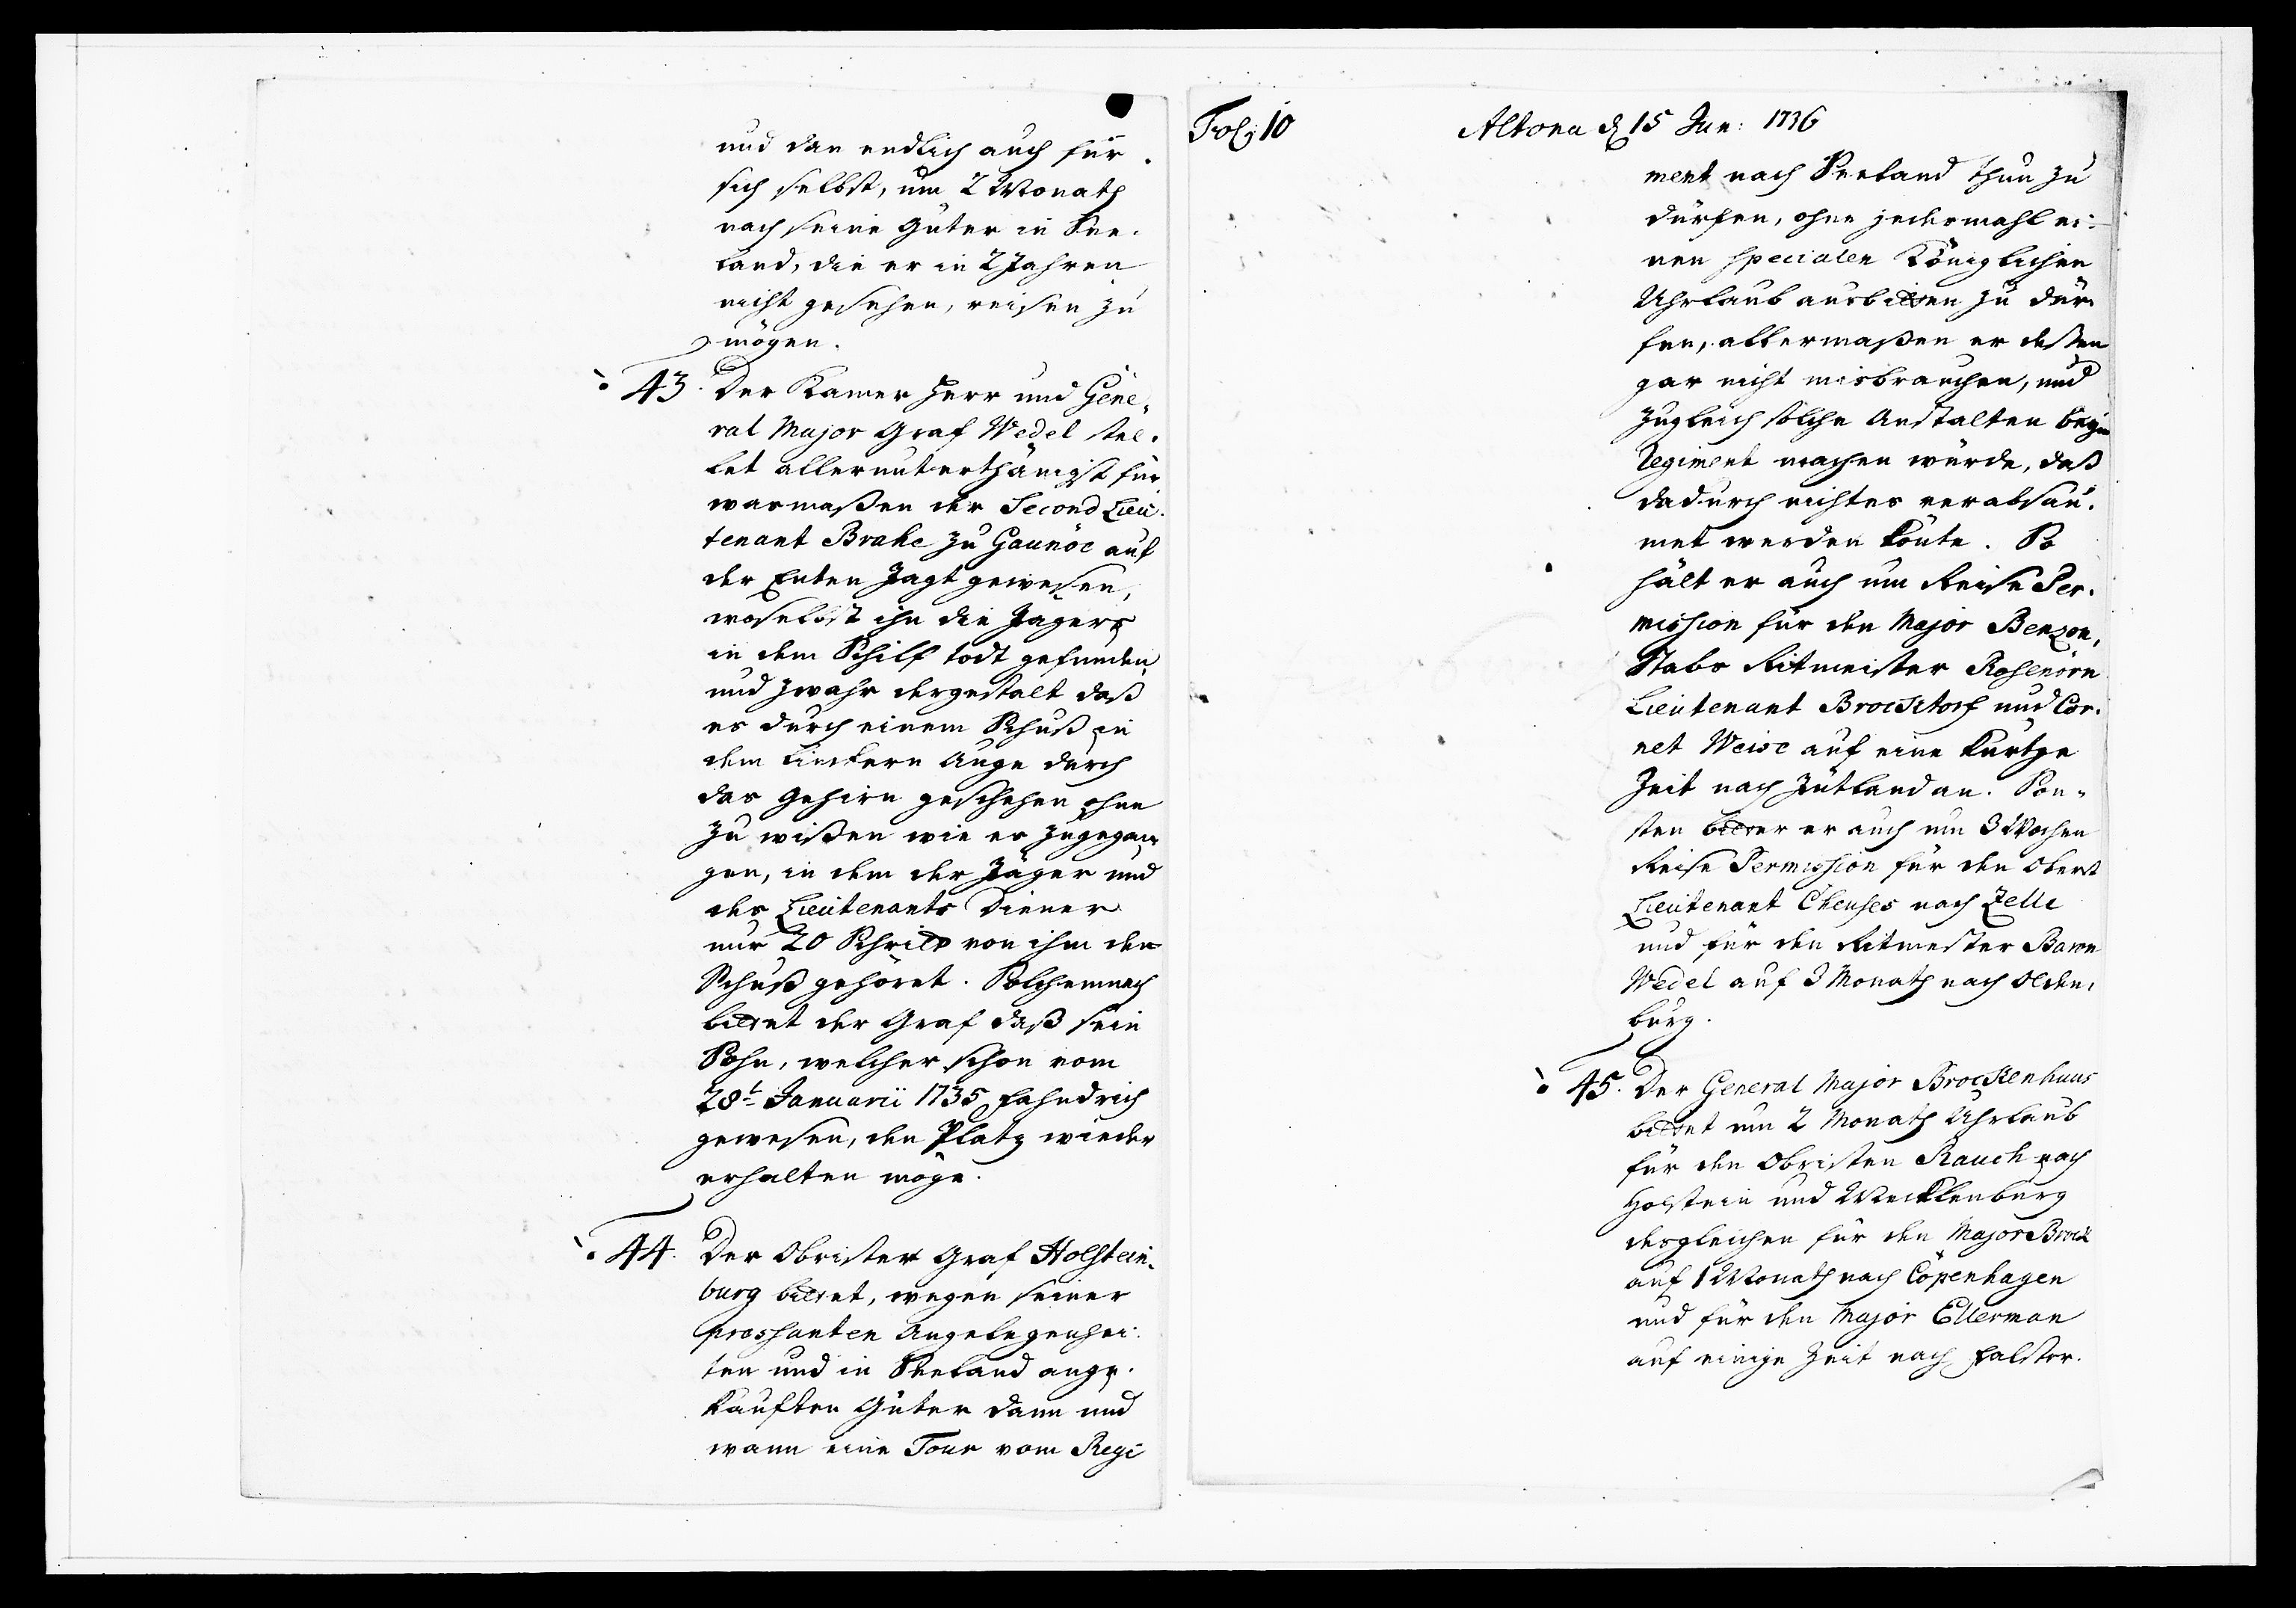 und dan endlich auch für
sich selbst, um 2 Monath
nach seine Güter in See-
land, die er in 2 Jahren
nicht gesehen, reisen zu
mögen.
43. Der Kamer Herr und Gene-
ral Major Graf Wedel stel-
let allerunterthänigst für
wasmaßen der Second Lieu-
tenant Brahe zu Gaunöe auf
der Enten Jagt gewesen,
woselbst ihn die Jägers
in dem Schilf todt gefunden
und zwahr dergestalt daß
es durch einem Schuß in
dem linckern Auge durch
das Gehirn geschehen ohne
zu wißen wie es zugegan-
gen, in dem der Jäger und
des Lieutenants Diener
nur 20 Schritt von ihm den
Schuß gehöret. Solchemnach
bittet der Graf daß sein
Sohn, welcher schon vom
28t Januarii 1735 Fahndrich
gewesen, den Platz wieder
erhalten möge.
44. Der Obrister Graf Holstein-
burg bittet, wegen seiner
pressanten Angelegenhei-
ten und in Seeland ange-
kauften Güter dann und
wann eine Tour vom Regi
Fol: 10
Altona d 15 Jun: 1736
ment nach Seeland thun zu
dürfen, ohne jedesmahl ei-
nen specialen Königlichen
Uhrlaub ausbitten zu dür-
fen, allermaßen er deßen
gar nicht misbrauchen, und
zugleich solche Anstalten beym
Regiment machen würde, daß
dadurch nichtes verabsäu-
met werden könte. So
hält er auch um Reise Per-
mission für den Major Benzon,
Stabs Ritmeister Rosenörn
Lieutenant Brockdorf und Cor-
net Weise auf eine kurtze
Zeit nach Jütland an. Son-
sten bittet er auch um 3 Wochen
Reise Permission für den Oberst
Lieutenant Cheuses nach Zelle
und für den Ritmester Baron
Wedel auf 3 Monath nach Olden-
burg.
45. Der General Major Brockenhuus
bittet um 2 Monath Uhrlaub
für den Obristen Rauch nach
Holstein und Mecklenburg
desgleichen für den Major Brock
auf 1 Monath nach Copenhagen
und für den Major Ellerman
auf einige Zeit nach Falster.